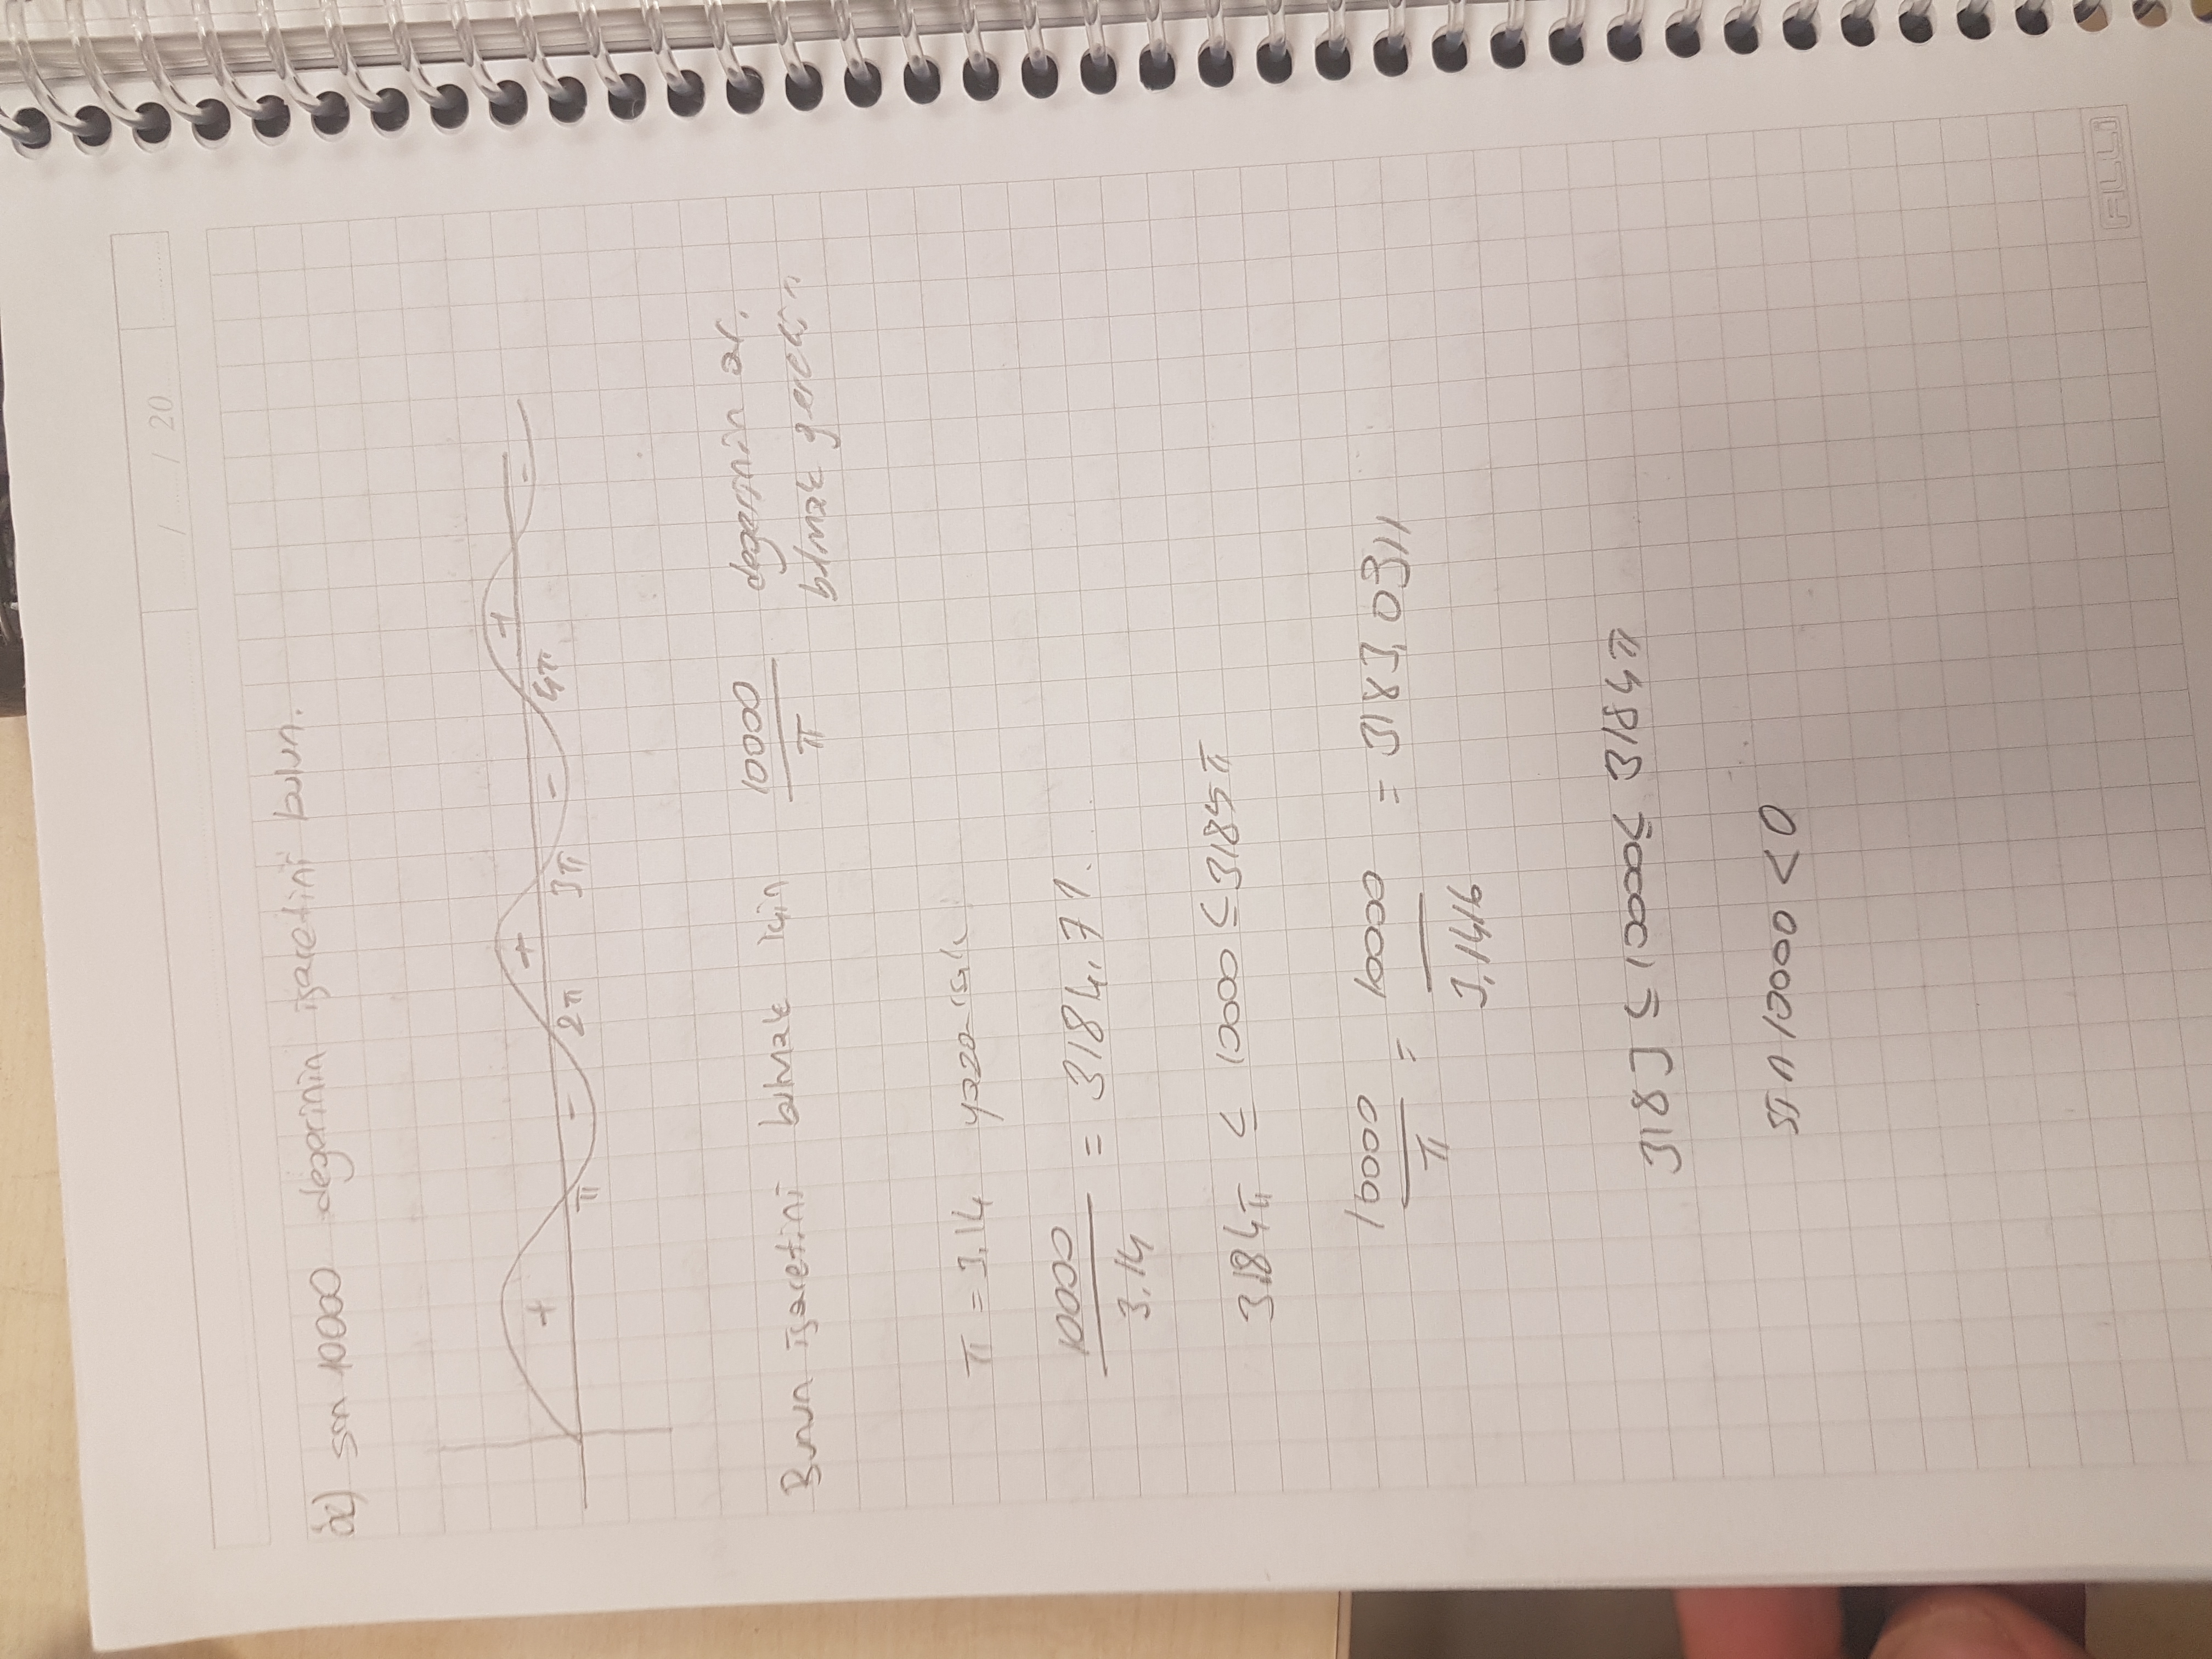 / / 20
ör) sin 10000 değerinin işaretini bulun.
+ - + - + -
π 2π 3π 4π
Bunun işaretini bilmek için 10000/π değerinin
bilmek gerekir
π = 3.14 yazarsak
10000/3.14 = 3184.71..
3184π ≤ 10000 ≤ 3185π
10000/π = 10000/3.1416 = 3183.0911
3183 ≤ 10000 ≤ 3184π
sin 10000 < 0
ALLi